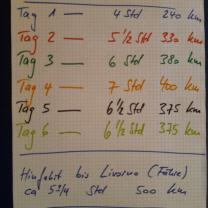 Tag 1 — 4 Std 240 km
Tag 2 — 5 1/2 Std 330 km
Tag 3 — 6 Std 380 km
Tag 4 — 7 Std 400 km
Tag 5 — 6 1/2 Std 375 km
Tag 6 — 6 1/2 Std 375 km
Hinfahrt bis Livorno (Fähre)
ca 5 3/4 Std 500 km